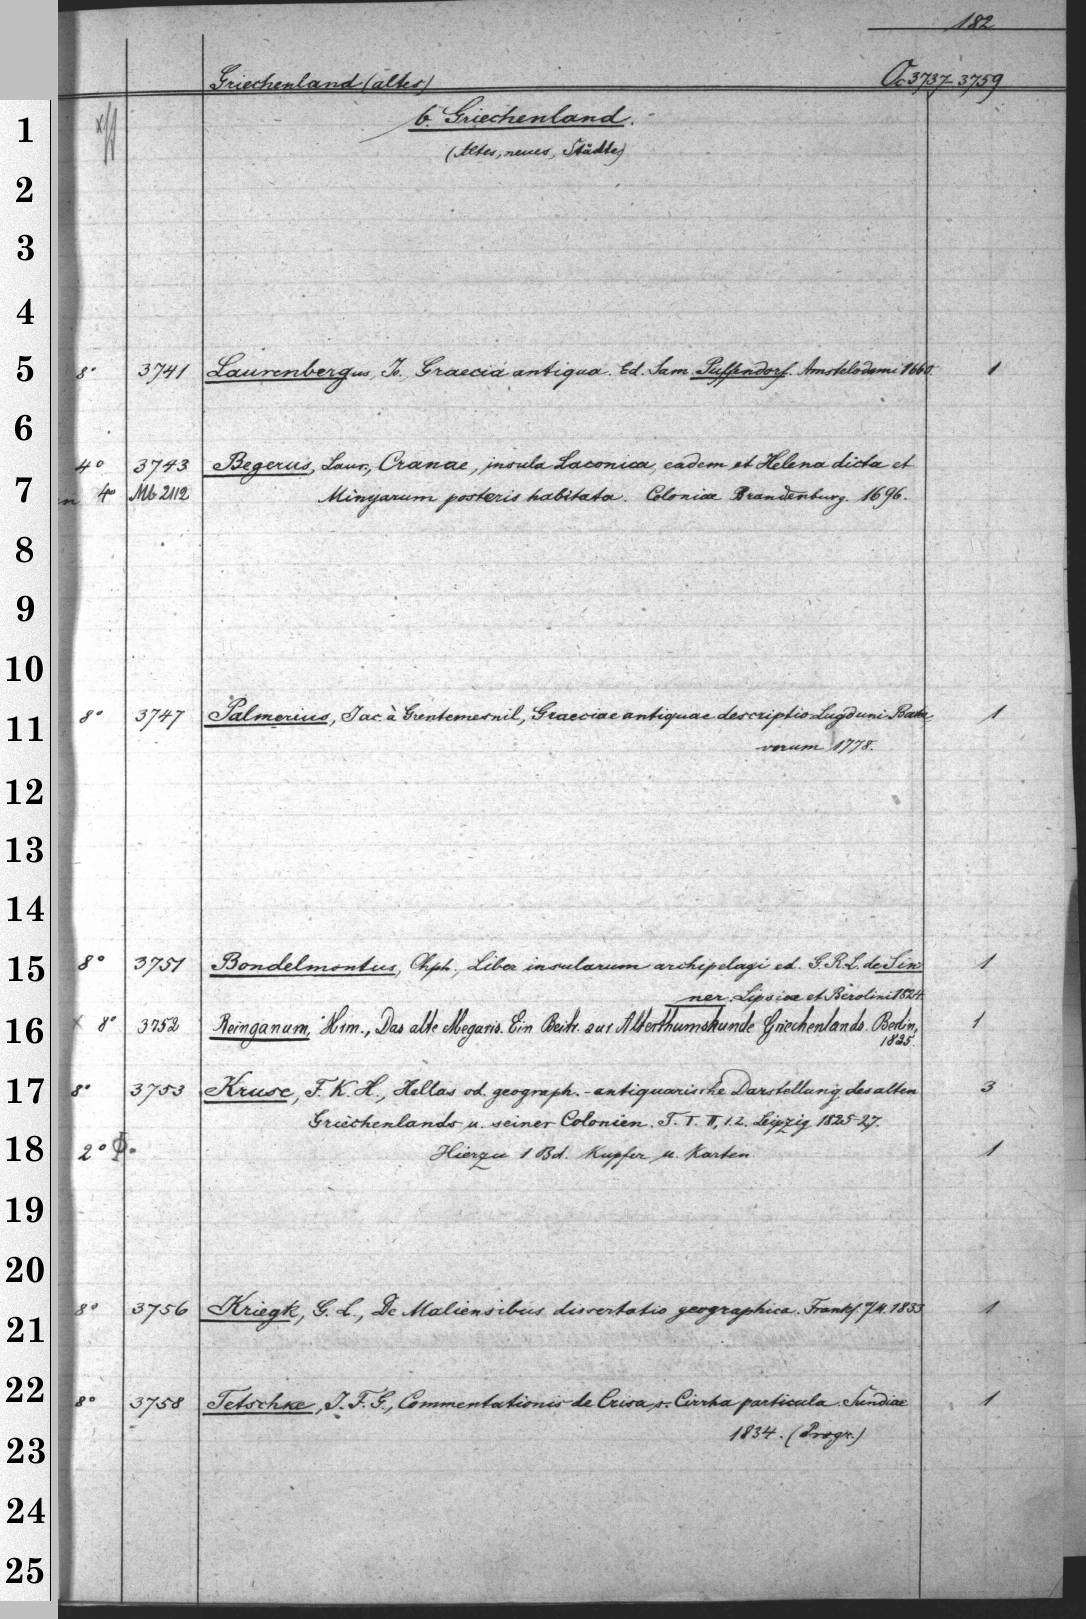 182
Griechenland (altes) Oc 3737-3759
1 b. Griechenland.
(Altes, neues, Städte)
2
3
4
5 8° 3741 Laurenbergus, Jo., Graecia antiqua. Ed. Sam. Puffendorf. Amstelodami 1660. 1
6
4° 3743 Begerus, Laur., Cranae, insula Laconica, eadem et Helena dicta et
7 4° Mb 2112 Minyarum posteris habitata. Coloniae Brandenburg. 1696.
8
9
10
11 8° 3747 Palmerius, Jac. à Grentemesnil, Graeciae antiquae descriptio Lugduni Bata-
vorum 1778. 1
12
13
14
15 8° 3751 Bondelmontius, Chph., Liber insularum archipelagi ed. G. R. L. de Sin- 1
ner. Lipsiae et Berolini 1824
16 x 8° 3752 Reinganum, Hrm., Das alte Megaris. Ein Beitr. zur Alterthumskunde Griechenlands. Berlin, 1
1825.
17 8° 3753 Kruse, F. K. H., Hellas od. geograph.-antiquarische Darstellung des alten 3
Griechenlands u. seiner Colonien. T. I. II, 1.2. Leipzig 1825-27.
18 2° Hierzu 1 Bd. Kupfer u. Karten 1
19
20
21 8° 3756 Kriegk, G. L., De Maliensibus dissertatio geographica. Frankf. 1833 1
22 8° 3758 Tetschke, J. F. G., Commentationis de Crisa s. Cirrha particula. Sundiae 1
23 1834. (Progr.)
24
25